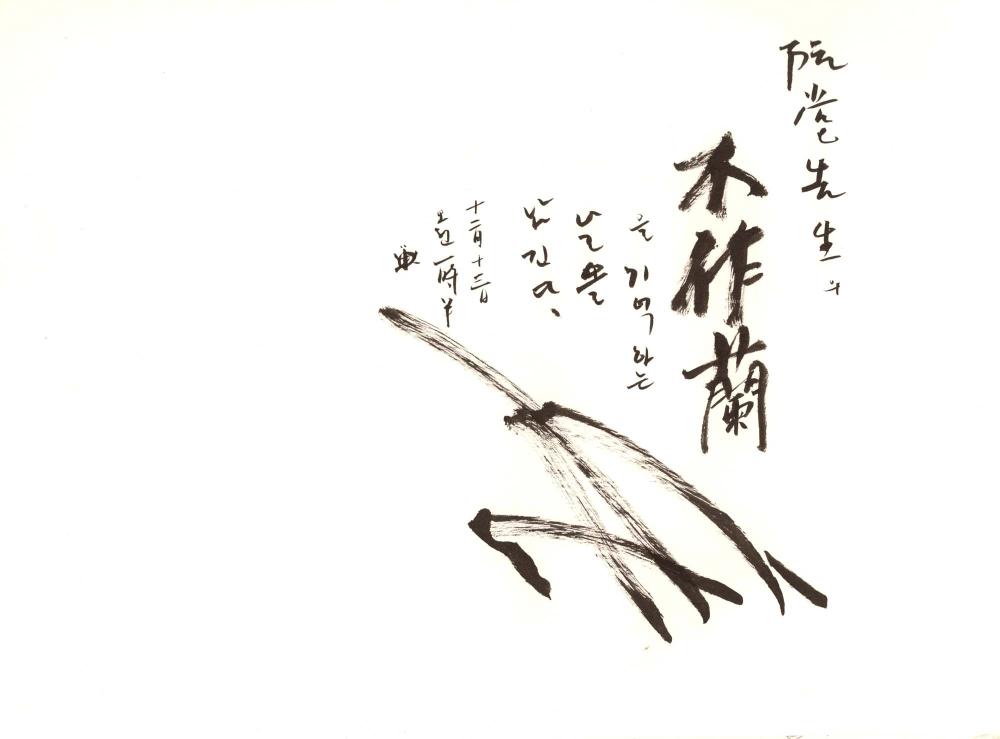 阮堂先生의
不作蘭
을 기억하는
날
남긴다.
十二月十三日
오전 一時半